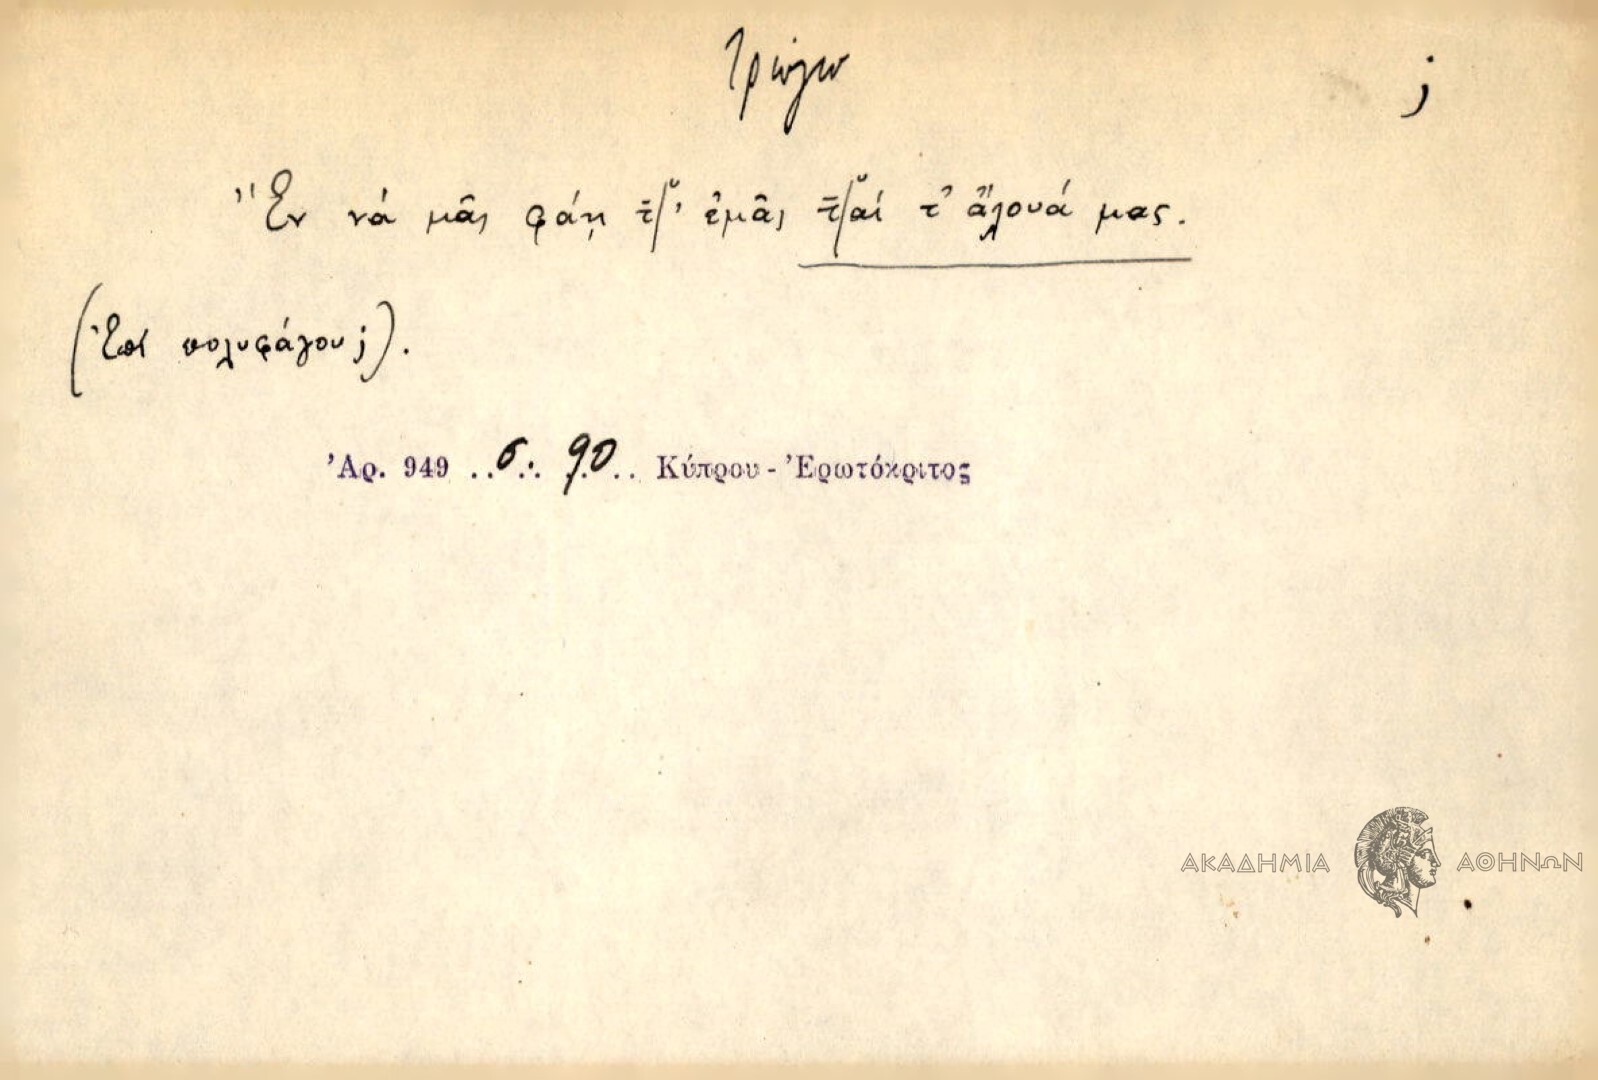 Τρώγω ;
Ἒν νά μᾶς φάῃ τζ̆' ἐμᾶς τζ̆αί τ' ἄλουά μας.
(Ἐπί πολυφάγου;).
Ἀρ. 949 ..σ.. 90.. Κύπρου - Ἐρωτόκριτος
ΑΚΑΔΗΜΙΑ ΑΘΗΝΩΝ